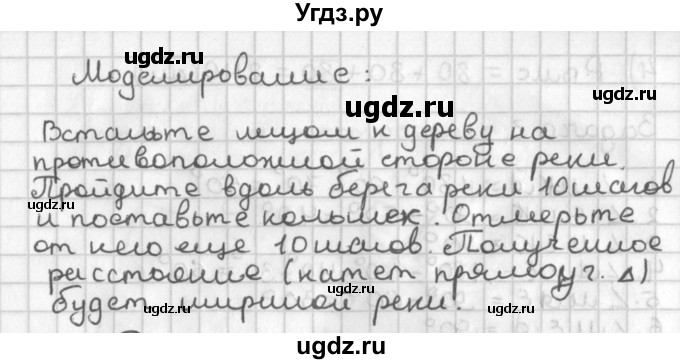 Угдз.ру
ugdz.ru ugdz.ru
Моделирование:
ugdz.ru
Встаньте лицом к дереву на
противоположной стороне реки.
Пройдите вдоль берега реки 10 шагов
ugdz.ru ugdz.ru ugdz.ru
и поставьте колышек. Отмерьте
от него еще 10 шагов. Полученное
расстояние (катет прямоуг. Δ)
ugdz.ru
будет шириной реки.
ugdz.ru ugdz.ru
ugdz.ru